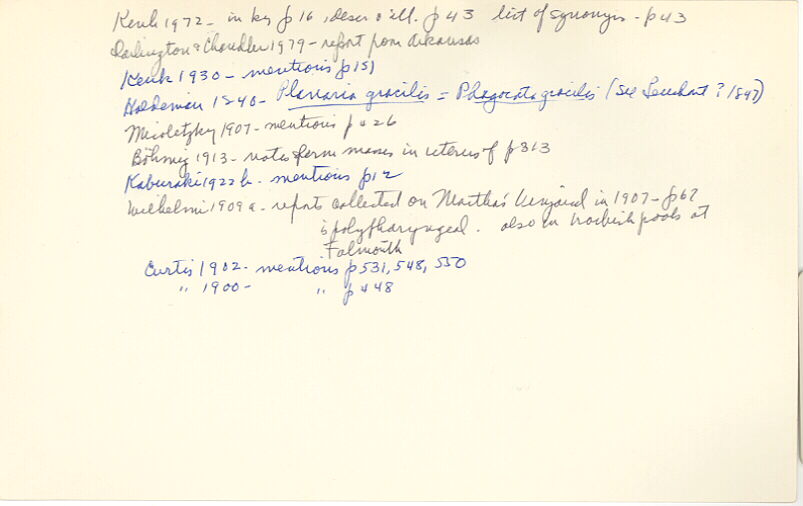 Kenk 1972 - in key p 16, descr & ill. p 43 list of synonyms - p 43
Darlington & Chandler 1979 - report from Arkansas
Kenk 1930 - mentions p 151
Haldeman 1840 - Planaria gracilis = Phagocata gracilis (see Leuchart ? 1847)
Micoletzky 1907 - mentions p 426
Böhmig 1913 - notes sperm masses in uterus of p 313
Kaburaki 1922 b. - mentions p 12
Wilhelmi 1909 a - reports collected on Martha's Vineyard in 1907 - p 6?
is polypharyngeal. also in brackish pools at
Falmouth
Curtis 1902 - mentions p 531, 548, 550
" 1900 - " p 448